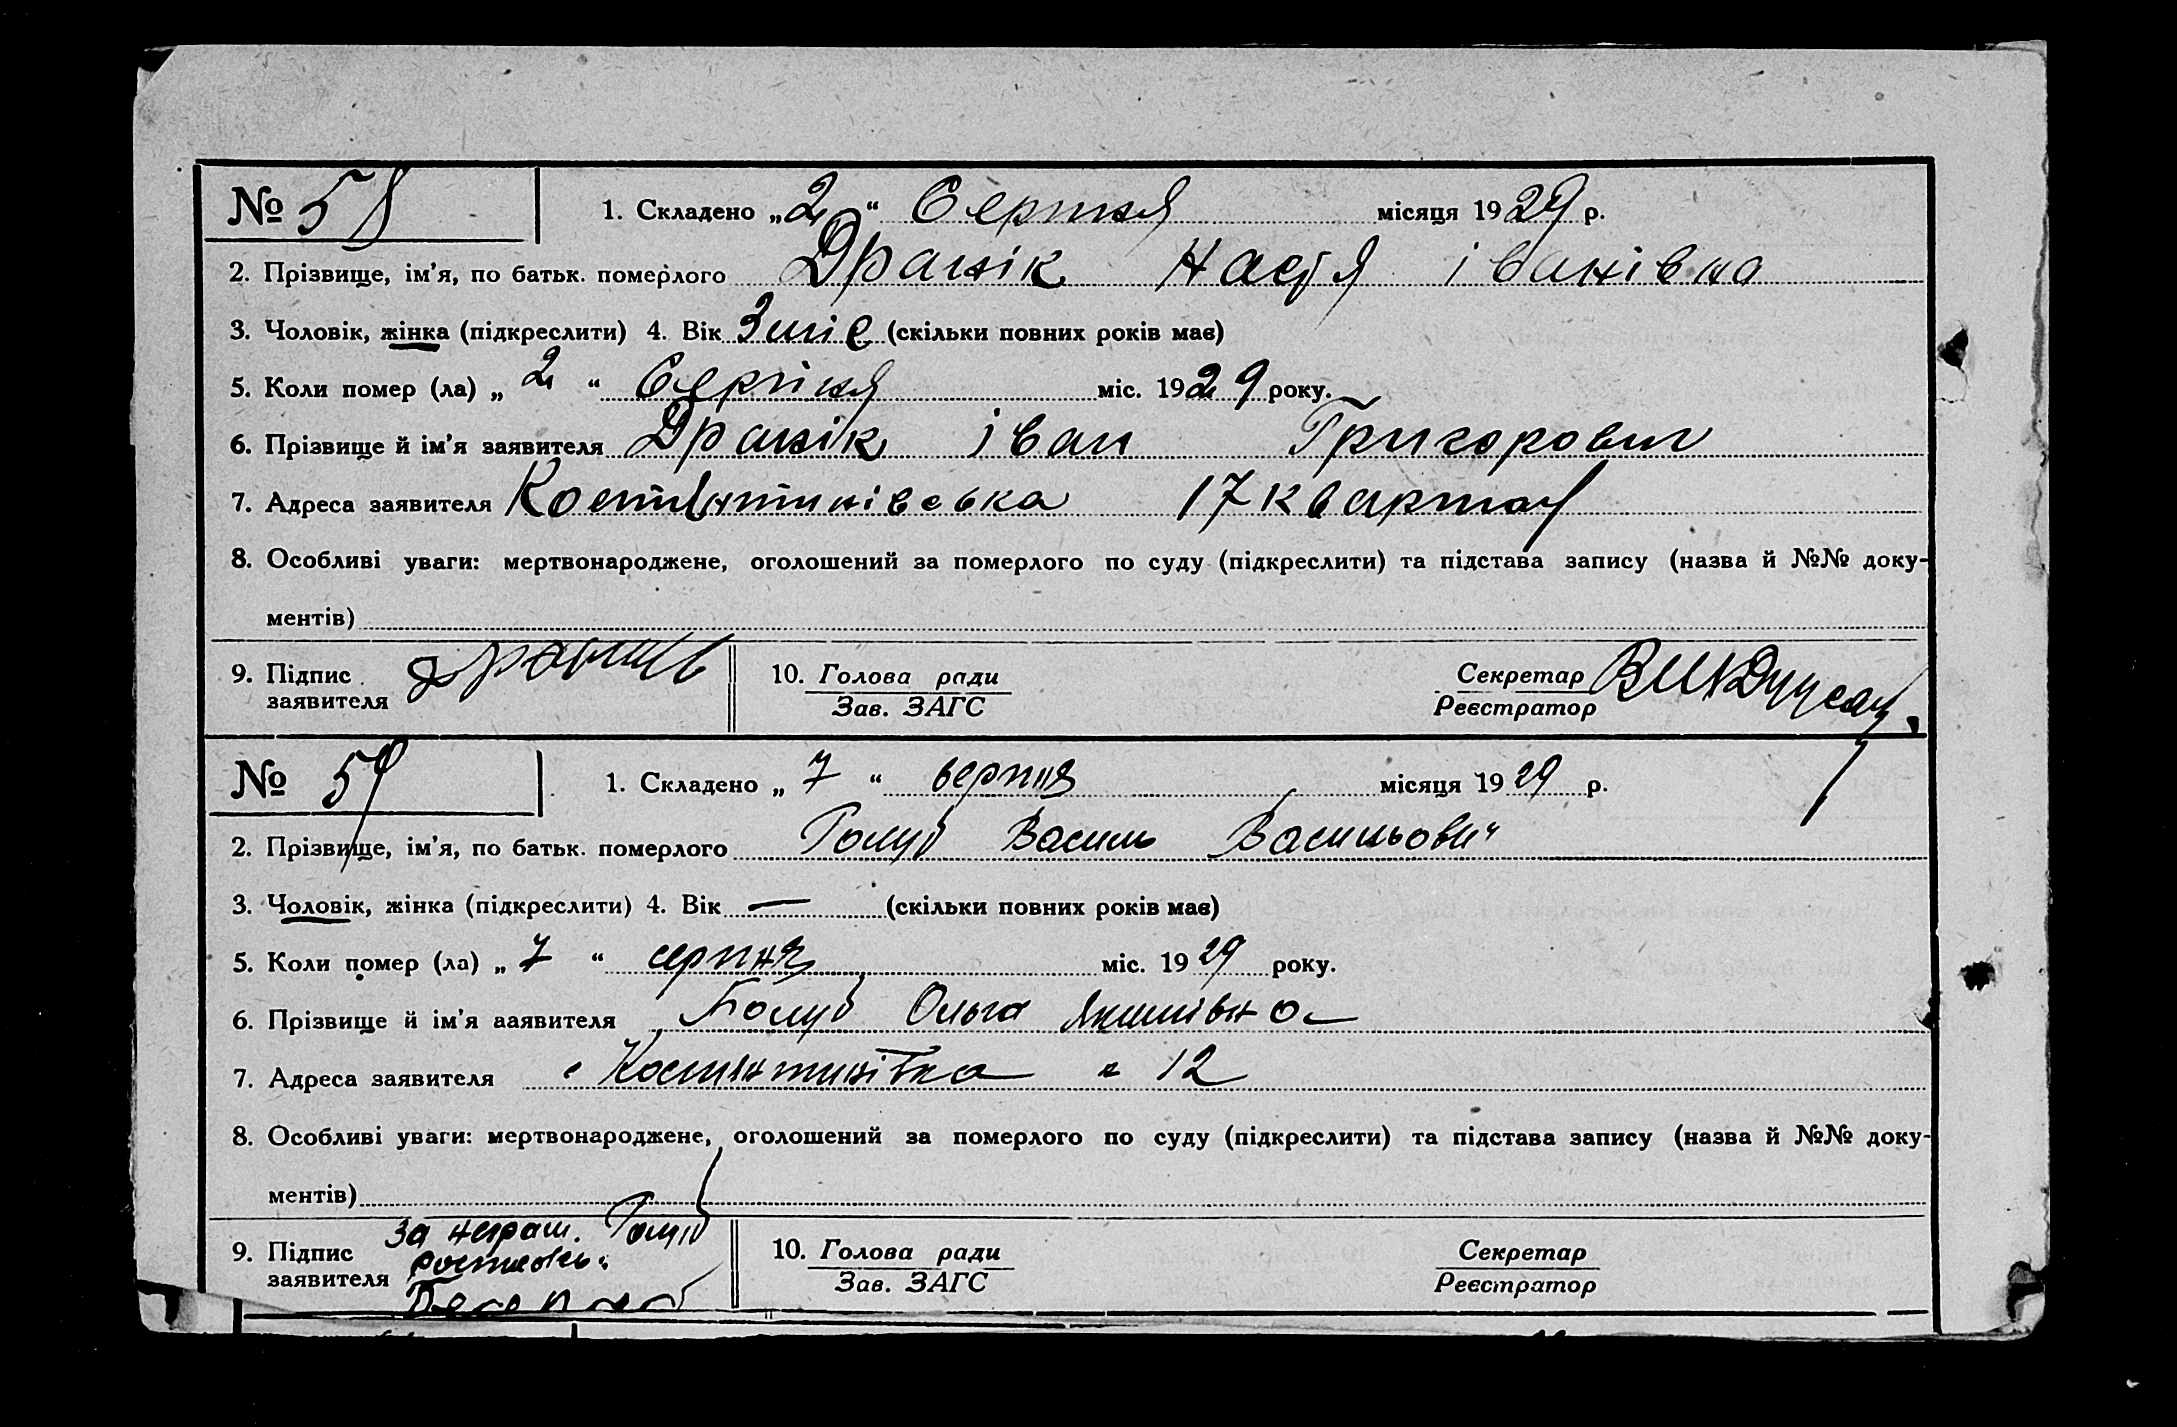 № 58 1. Складено „2“ Серпня місяця 1929 р.
2. Прізвище, ім’я, по батьк. померлого Драник Настя іванівна
3. Чоловік, жінка (підкреслити) 4. Вік 3 міс (скільки повних років має)
5. Коли помер (ла) „2“ Серпня міс. 1929 року.
6. Прізвище й ім’я заявителя Дранік іван Григорович
7. Адреса заявителя Костянтинівська 17 квартал
8. Особливі уваги: мертвонароджене, оголошений за померлого по суду (підкреслити) та підстава запису (назва й №№ доку-
ментів)
9. Підпис 10. Голова ради Секретар
заявителя Зав. ЗАГС Реєстратор
№ 59 1. Складено „7“ серпня місяця 1929 р.
2. Прізвище, ім’я, по батьк. померлого Голуб Василь Васильович
3. Чоловік, жінка (підкреслити) 4. Вік — (скільки повних років має)
5. Коли помер (ла) „7“ серпня міс. 1929 року.
6. Прізвище й ім’я аявителя Голуб Ольга
7. Адреса заявителя 12
8. Особливі уваги: мертвонароджене, оголошений за померлого по суду (підкреслити) та підстава запису (назва й №№ доку-
ментів)
9. Підпис за неграм. Голуб 10. Голова ради Секретар
заявителя Зав. ЗАГС Реєстратор